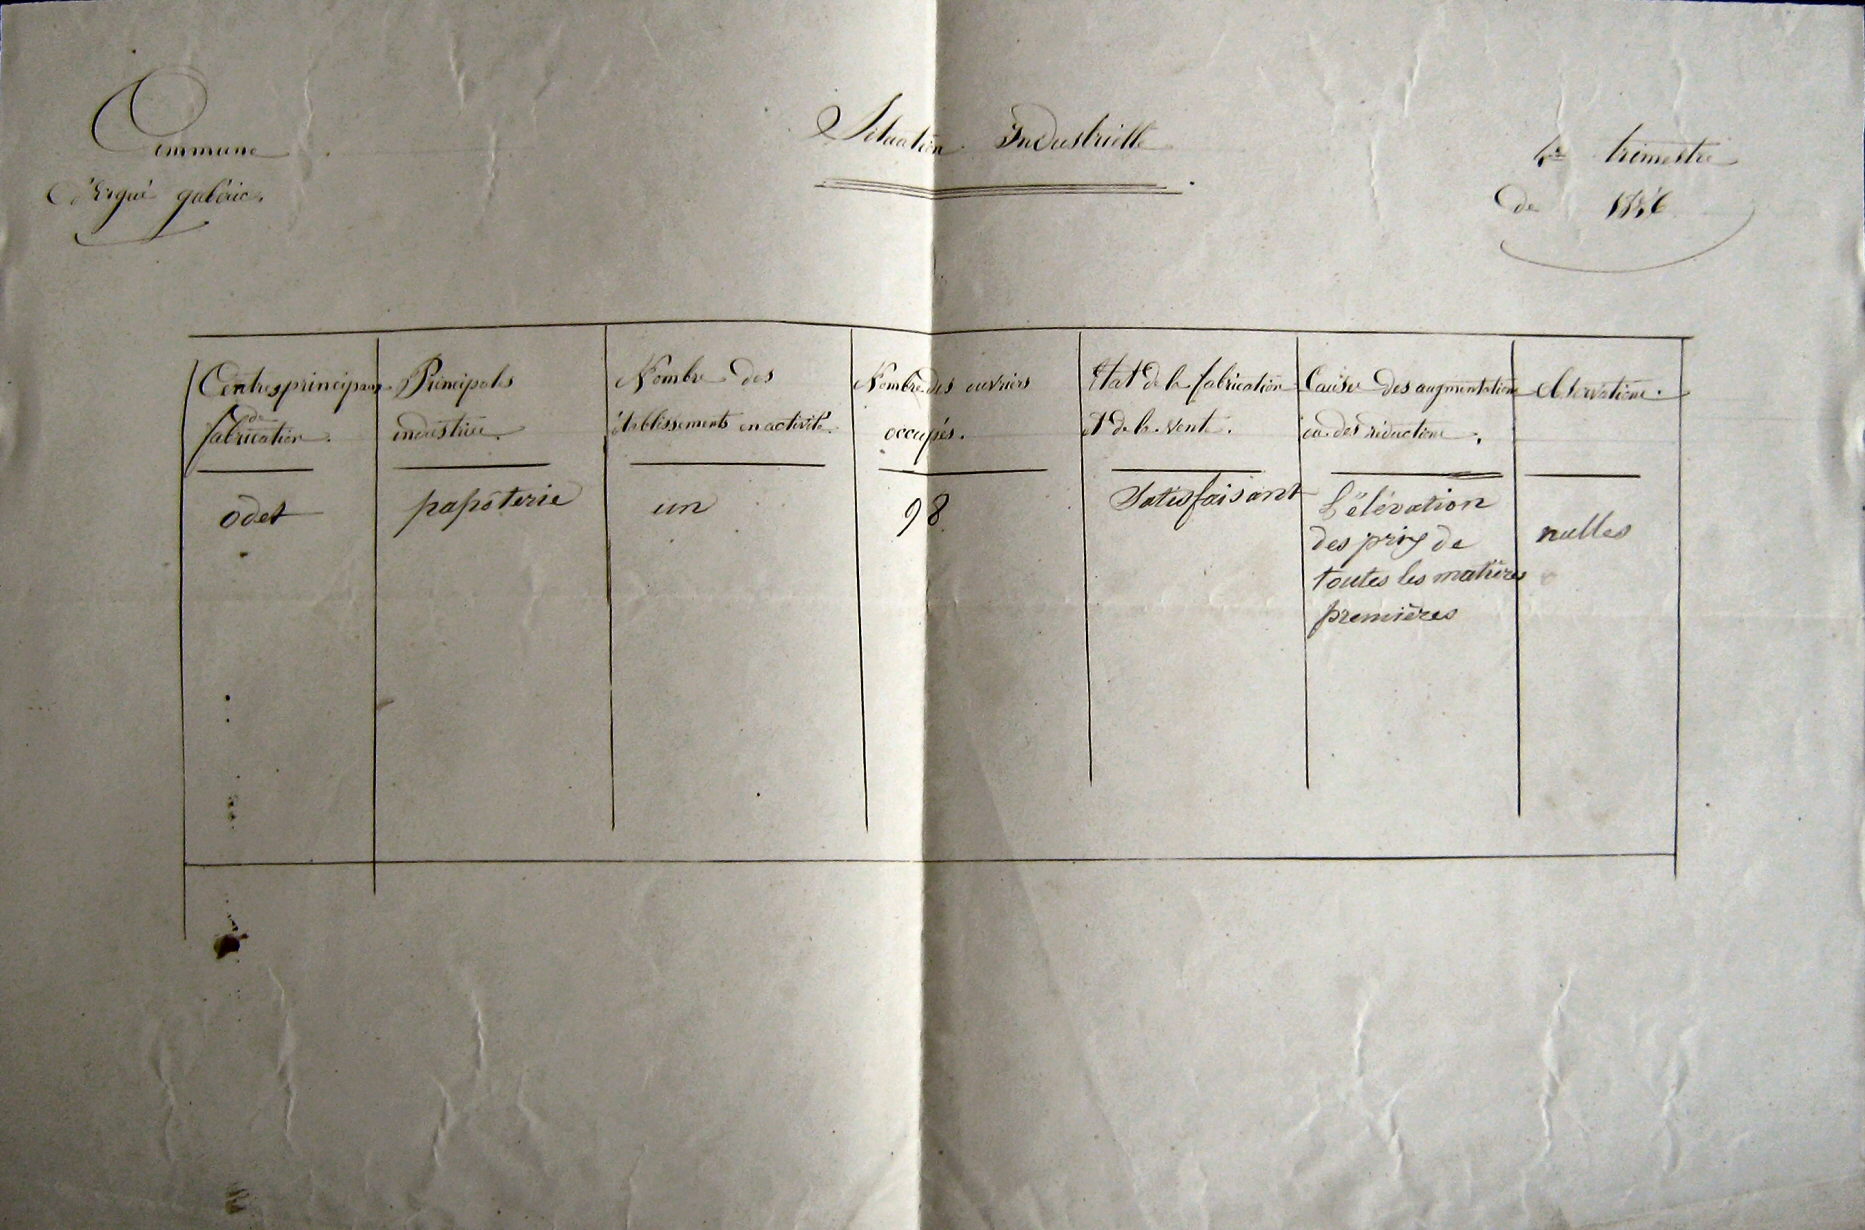 Commune
d'Ergué gabéric.
Situation Industrielle
trimestre
de
Centres principaux
de
fabrication.
Principales
industries.
Nombre des
établissements en activité.
Nombre des ouvriers
occupés.
Etat de la fabrication
et de la vente.
Cause des augmentations
ou des réductions.
Observations.
odet
papéterie
un
98
Satisfaisant
L'élévation
des prix de
toutes les matières
premières
nulles